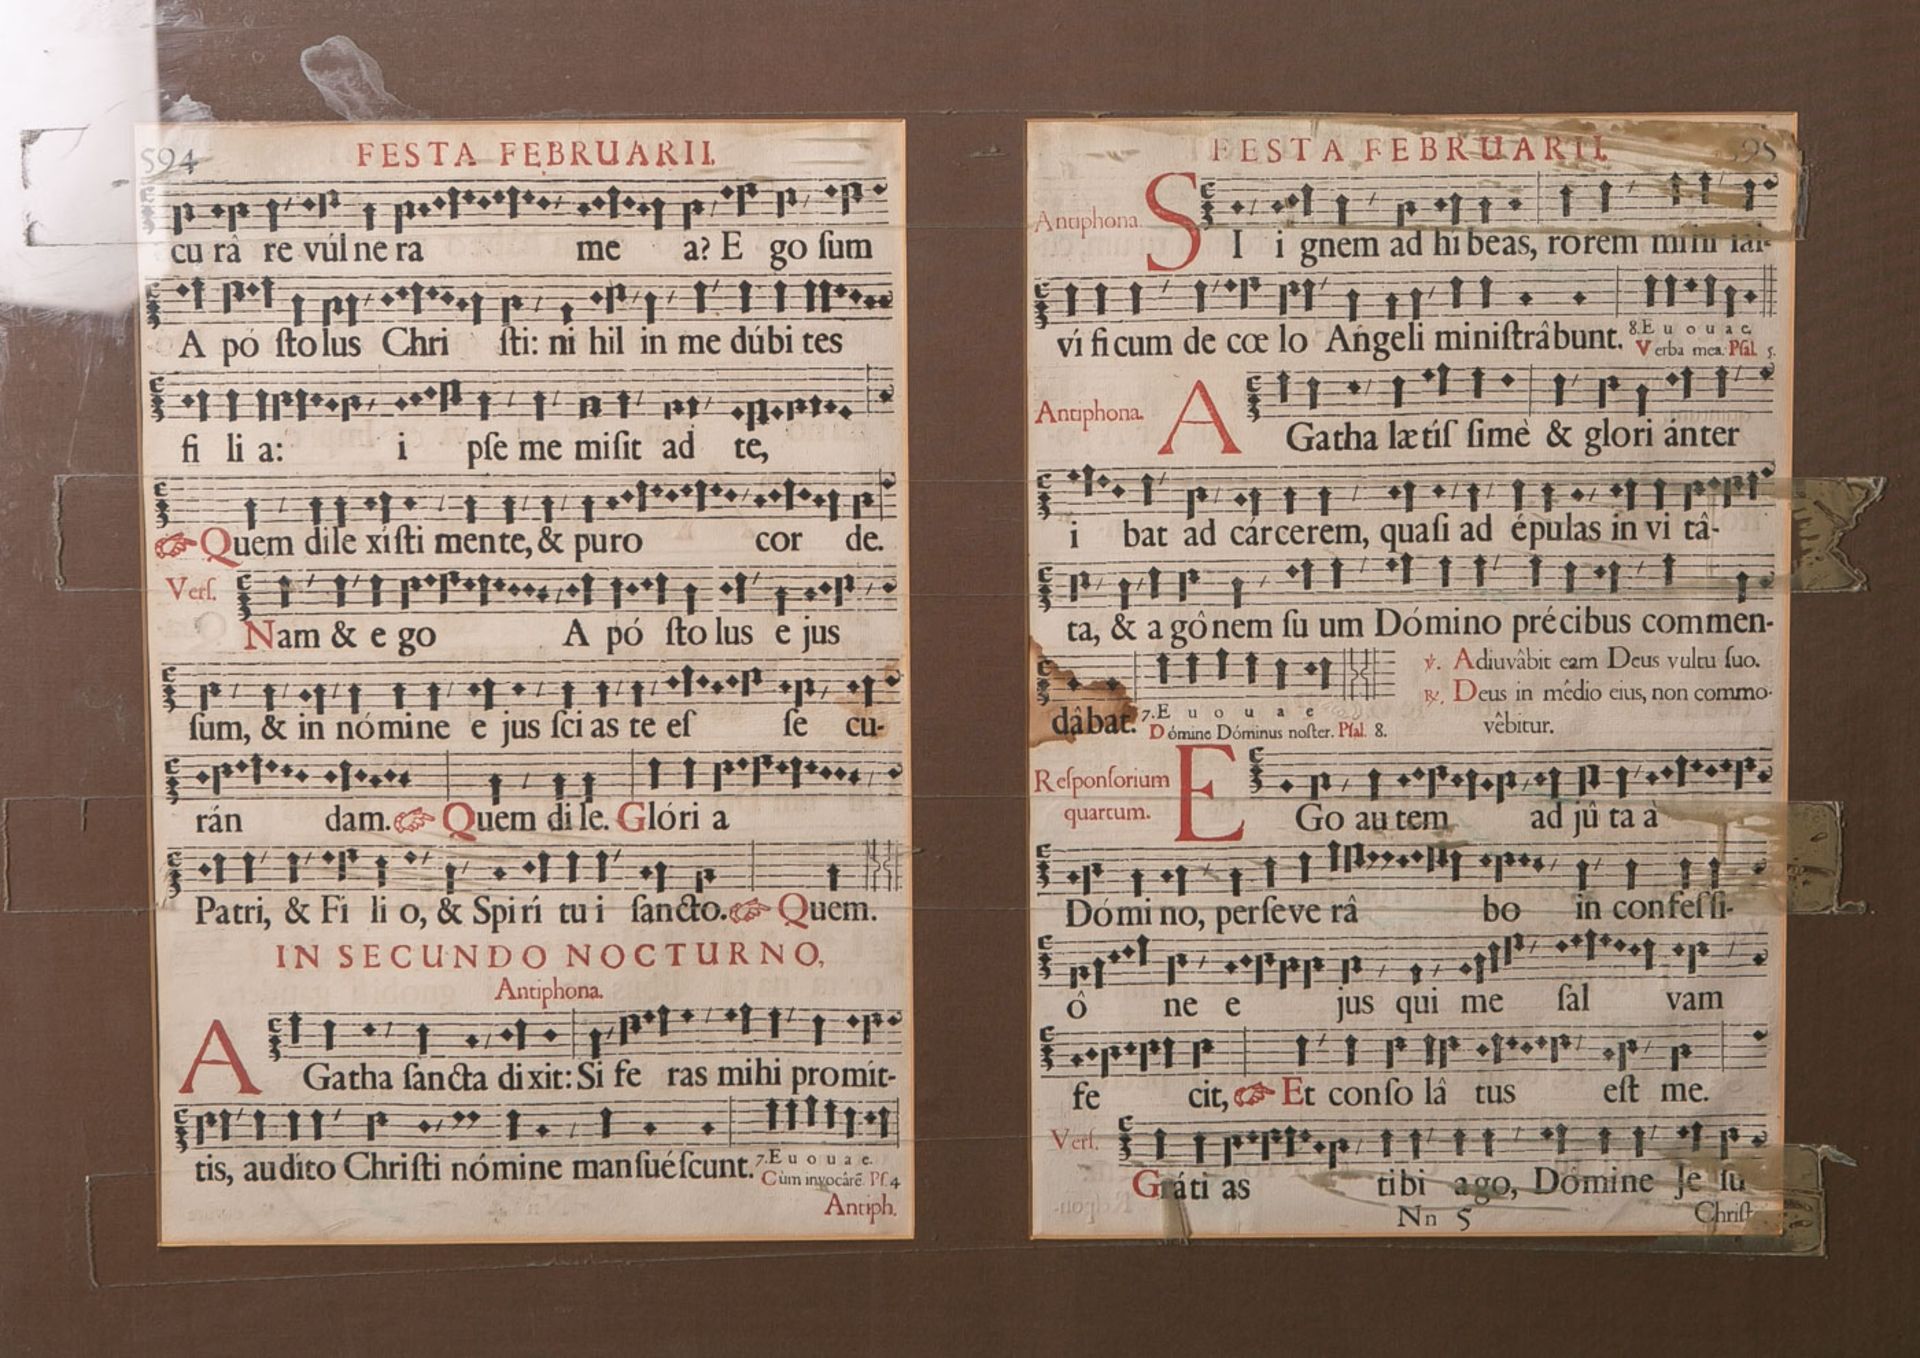 594 FESTA FEBRUARII.
cu râ re vúl ne ra me a? E go ſum
A pó ſto lus Chri ſti: ni hil in me dúbi tes
fi li a: i pſe me miſit ad te,
☞ Quem dile xiſti mente, & puro cor de.
Verſ.
Nam & e go A pó ſto lus e jus
ſum, & in nómine e jus ſci as te eſ ſe cu-
rán dam. ☞ Quem di le. Glóri a
Patri, & Fi li o, & Spirí tu i ſancto. ☞ Quem.
IN SECUNDO NOCTURNO,
Antiphona.
AGatha ſancta dixit: Si fe ras mihi promít-
tis, audíto Chriſti nómine manſuéſcunt. 7. E u o u a e.
Cùm invocârē. Pſ. 4
Antiph.
FESTA FEBRUARII. 595
Antiphona.
SI i gnem ad hí beas, rorem mihi
ví ficum de cœ lo Angeli miniſtrâbunt. 8. E u o u a e.
Verba mea. Pſal. 5.
Antiphona.
AGatha lætíſ ſimè & glori ánter
i bat ad cárcerem, quaſi ad épulas in vi tâ-
ta, & a gônem ſu um Dómino précibus commen-
dâbat. 7. E u o u a e
Dómine Dóminus noſter. Pſal. 8.
℣. Adiuvâbit eam Deus vultu ſuo.
℟. Deus in mêdio eius, non commo-
vêbitur.
Reſponſorium
quartum.
EGo au tem ad jû ta à
Dómi no, perſeve râ bo in confeſ ſi-
ô ne e jus qui me ſal vam
fe cit, ☞ Et conſo lâ tus eſt me.
Verſ.
Gráti as tibi ago, Dómine Je ſu
Nn 5